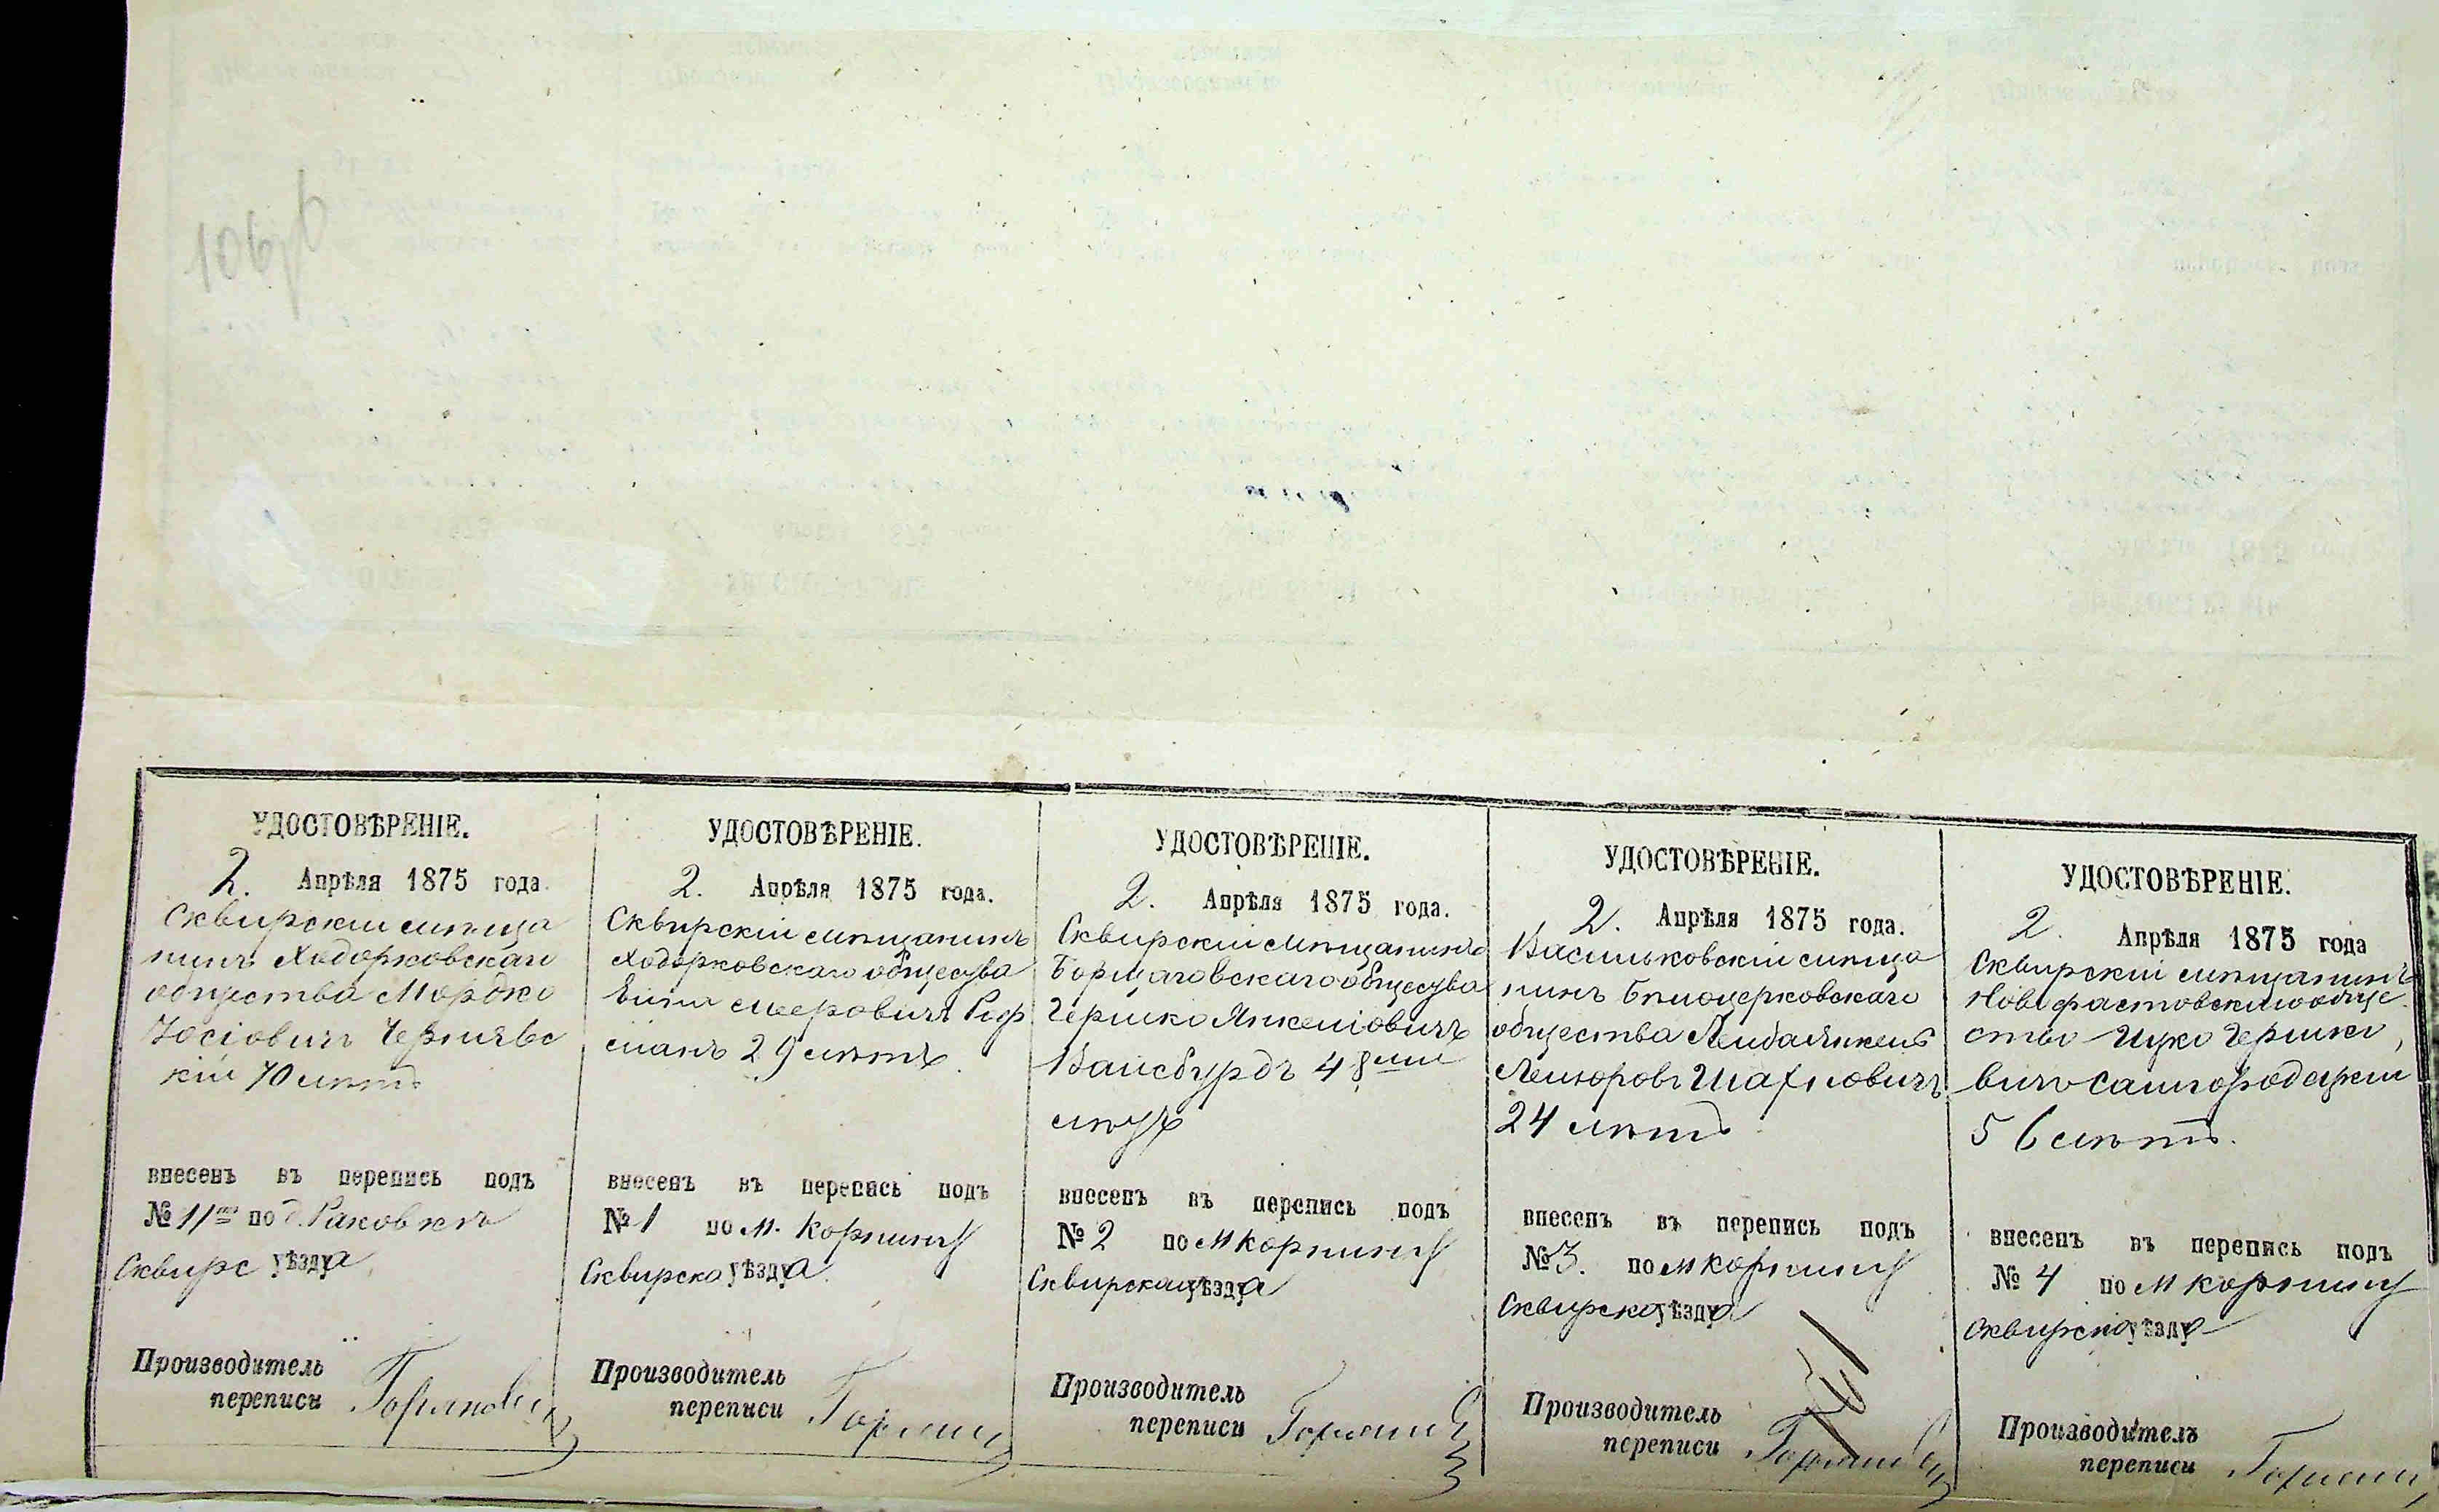 106
УДОСТОВѢРЕНІЕ.
2. Апрѣля 1875 года.
Сквирскій мѣща
нинъ Ходорковскаго
общества Мордко
Іосіовичъ Чернявс
кій 70 лѣтъ
внесенъ въ перепись подъ
№ 11 по д. Раковкѣ
Сквирс уѣзда
Производитель
переписи
УДОСТОВѢРЕНІЕ.
2. Апрѣля 1875 года.
Сквирскій мѣщанинъ
Ходорковскаго общества
Мееровичъ
29 лѣтъ.
внесенъ въ перепись подъ
№ 1 по м. Корнину
Сквирско уѣзда
Производитель
переписи
УДОСТОВѢРЕНІЕ.
2. Апрѣля 1875 года.
Сквирскій мѣщанинъ
Борщаговскаго общества
Гершко Янкеліовичъ
Вайсбурдъ 48
лѣтъ
внесенъ въ перепись подъ
№ 2 по м Корнину
Сквирскаго уѣзда
Производитель
переписи
УДОСТОВѢРЕНІЕ.
2. Апрѣля 1875 года.
Васильковскій мѣща
нинъ Бѣлоцерковскаго
общества
24 лѣтъ
внесенъ въ перепись подъ
№ 3. по м Корнину
Сквирско уѣзда
Производитель
переписи
УДОСТОВѢРЕНІЕ.
2. Апрѣля 1875 года
Сквирскій мѣщанинъ
Новофастовскаго обще
ства Ицко Гершко
вичъ Самгородецкій
56 лѣтъ.
внесенъ въ перепись подъ
№ 4 по м Корнину
Сквирско уѣзда
Производитель
переписи